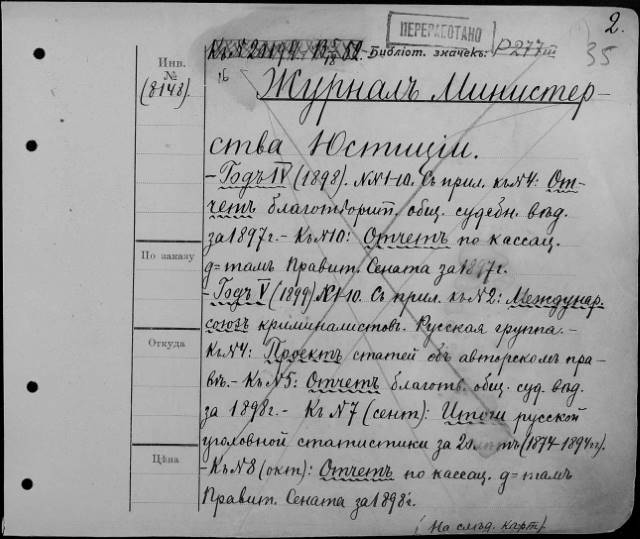 ПЕРЕРАБОТАНО
2.
35
Библіот. значекъ: Р277
Инв.
№
(8148)
16
Журналъ Министер-
ства Юстиціи.
- Годъ IV (1898). №№1-10. Съ прил. къ №4: От-
четъ благотворит. общ. судебн. вѣд.
за 1897г. - Къ №10: Отчетъ по кассац.
По заказу
д=тамъ Правит. Сената за 1897г.
- Годъ V (1899) №1-10. Съ прил. къ №2: Междунар.
союзъ криминалистовъ. Русская группа. -
Откуда
Къ №4: Проектъ статей объ авторскомъ пра-
вѣ. - Къ №5: Отчетъ благотв. общ. суд. вѣд.
за 1898г. - Къ №7 (сент): Итоги русской
уголовной статистики за 20 лѣтъ (1874-1894гг).
Цѣна
- Къ №8 (окт): Отчетъ по кассац. д=тамъ
Правит. Сената за 1898г.
(На слѣд. карт.)